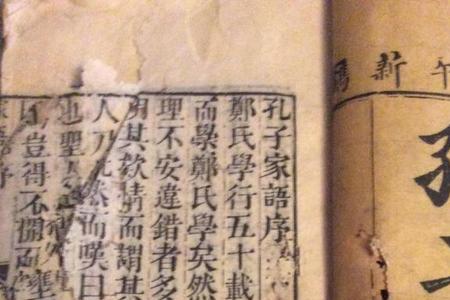 午新鐫
孔
孔子家語序
鄭氏學行五十載
而學鄭氏學矣然
理不安違錯者多
明其款情而謂其
人乃慨然而嘆曰
也聖人
豈得不開而